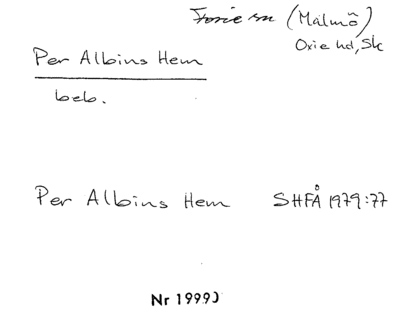 Fosie sn (Malmö)
Oxie hd, Sk
Per Albins Hem
beb.
Per Albins Hem SHFÅ 1979:77
Nr 1999